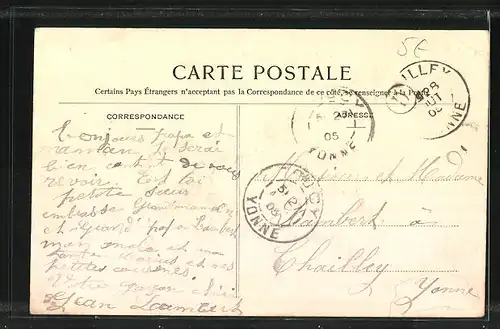 5€
CARTE POSTALE
Certains Pays Étrangers n'acceptant pas la Correspondance de ce côté, se renseigner à la Poste
CORRESPONDANCE
ADRESSE
Bonjours papa et
maman je serai
bien content de vous
revoir. Et toi
petite sœur
embrasse Grandmaman
et Grand papa Lambert
mon oncle et ma
tante Marius et mes
petites cousines.
Votre garçon chéri
Jean Lambert
Monsieur et Madame
Lambert à
Chailley
Yonne
CHAILLEY
28
AOUT
05
YONNE
05
YONNE
05
YONNE